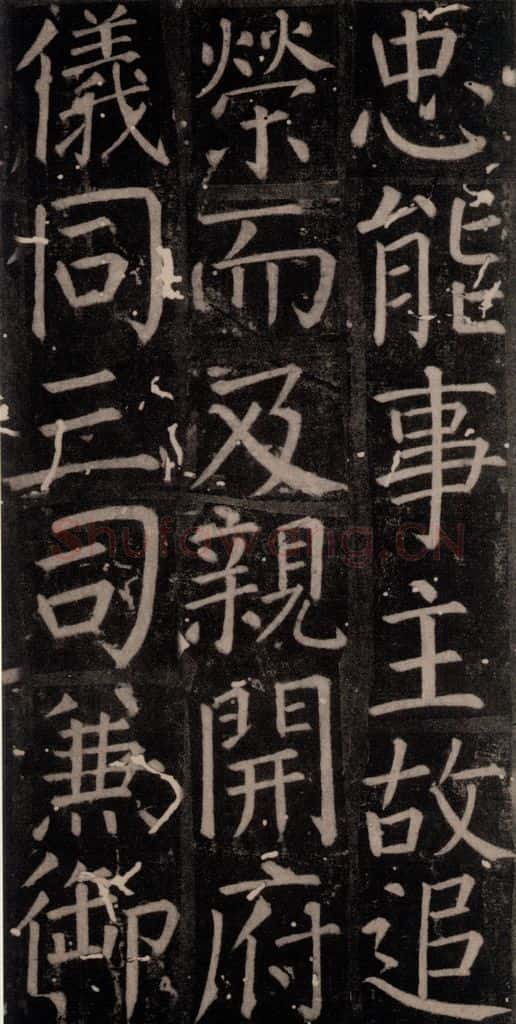 忠能事主故追
榮而及親開府
儀同三司兼御
Shufawang.CN